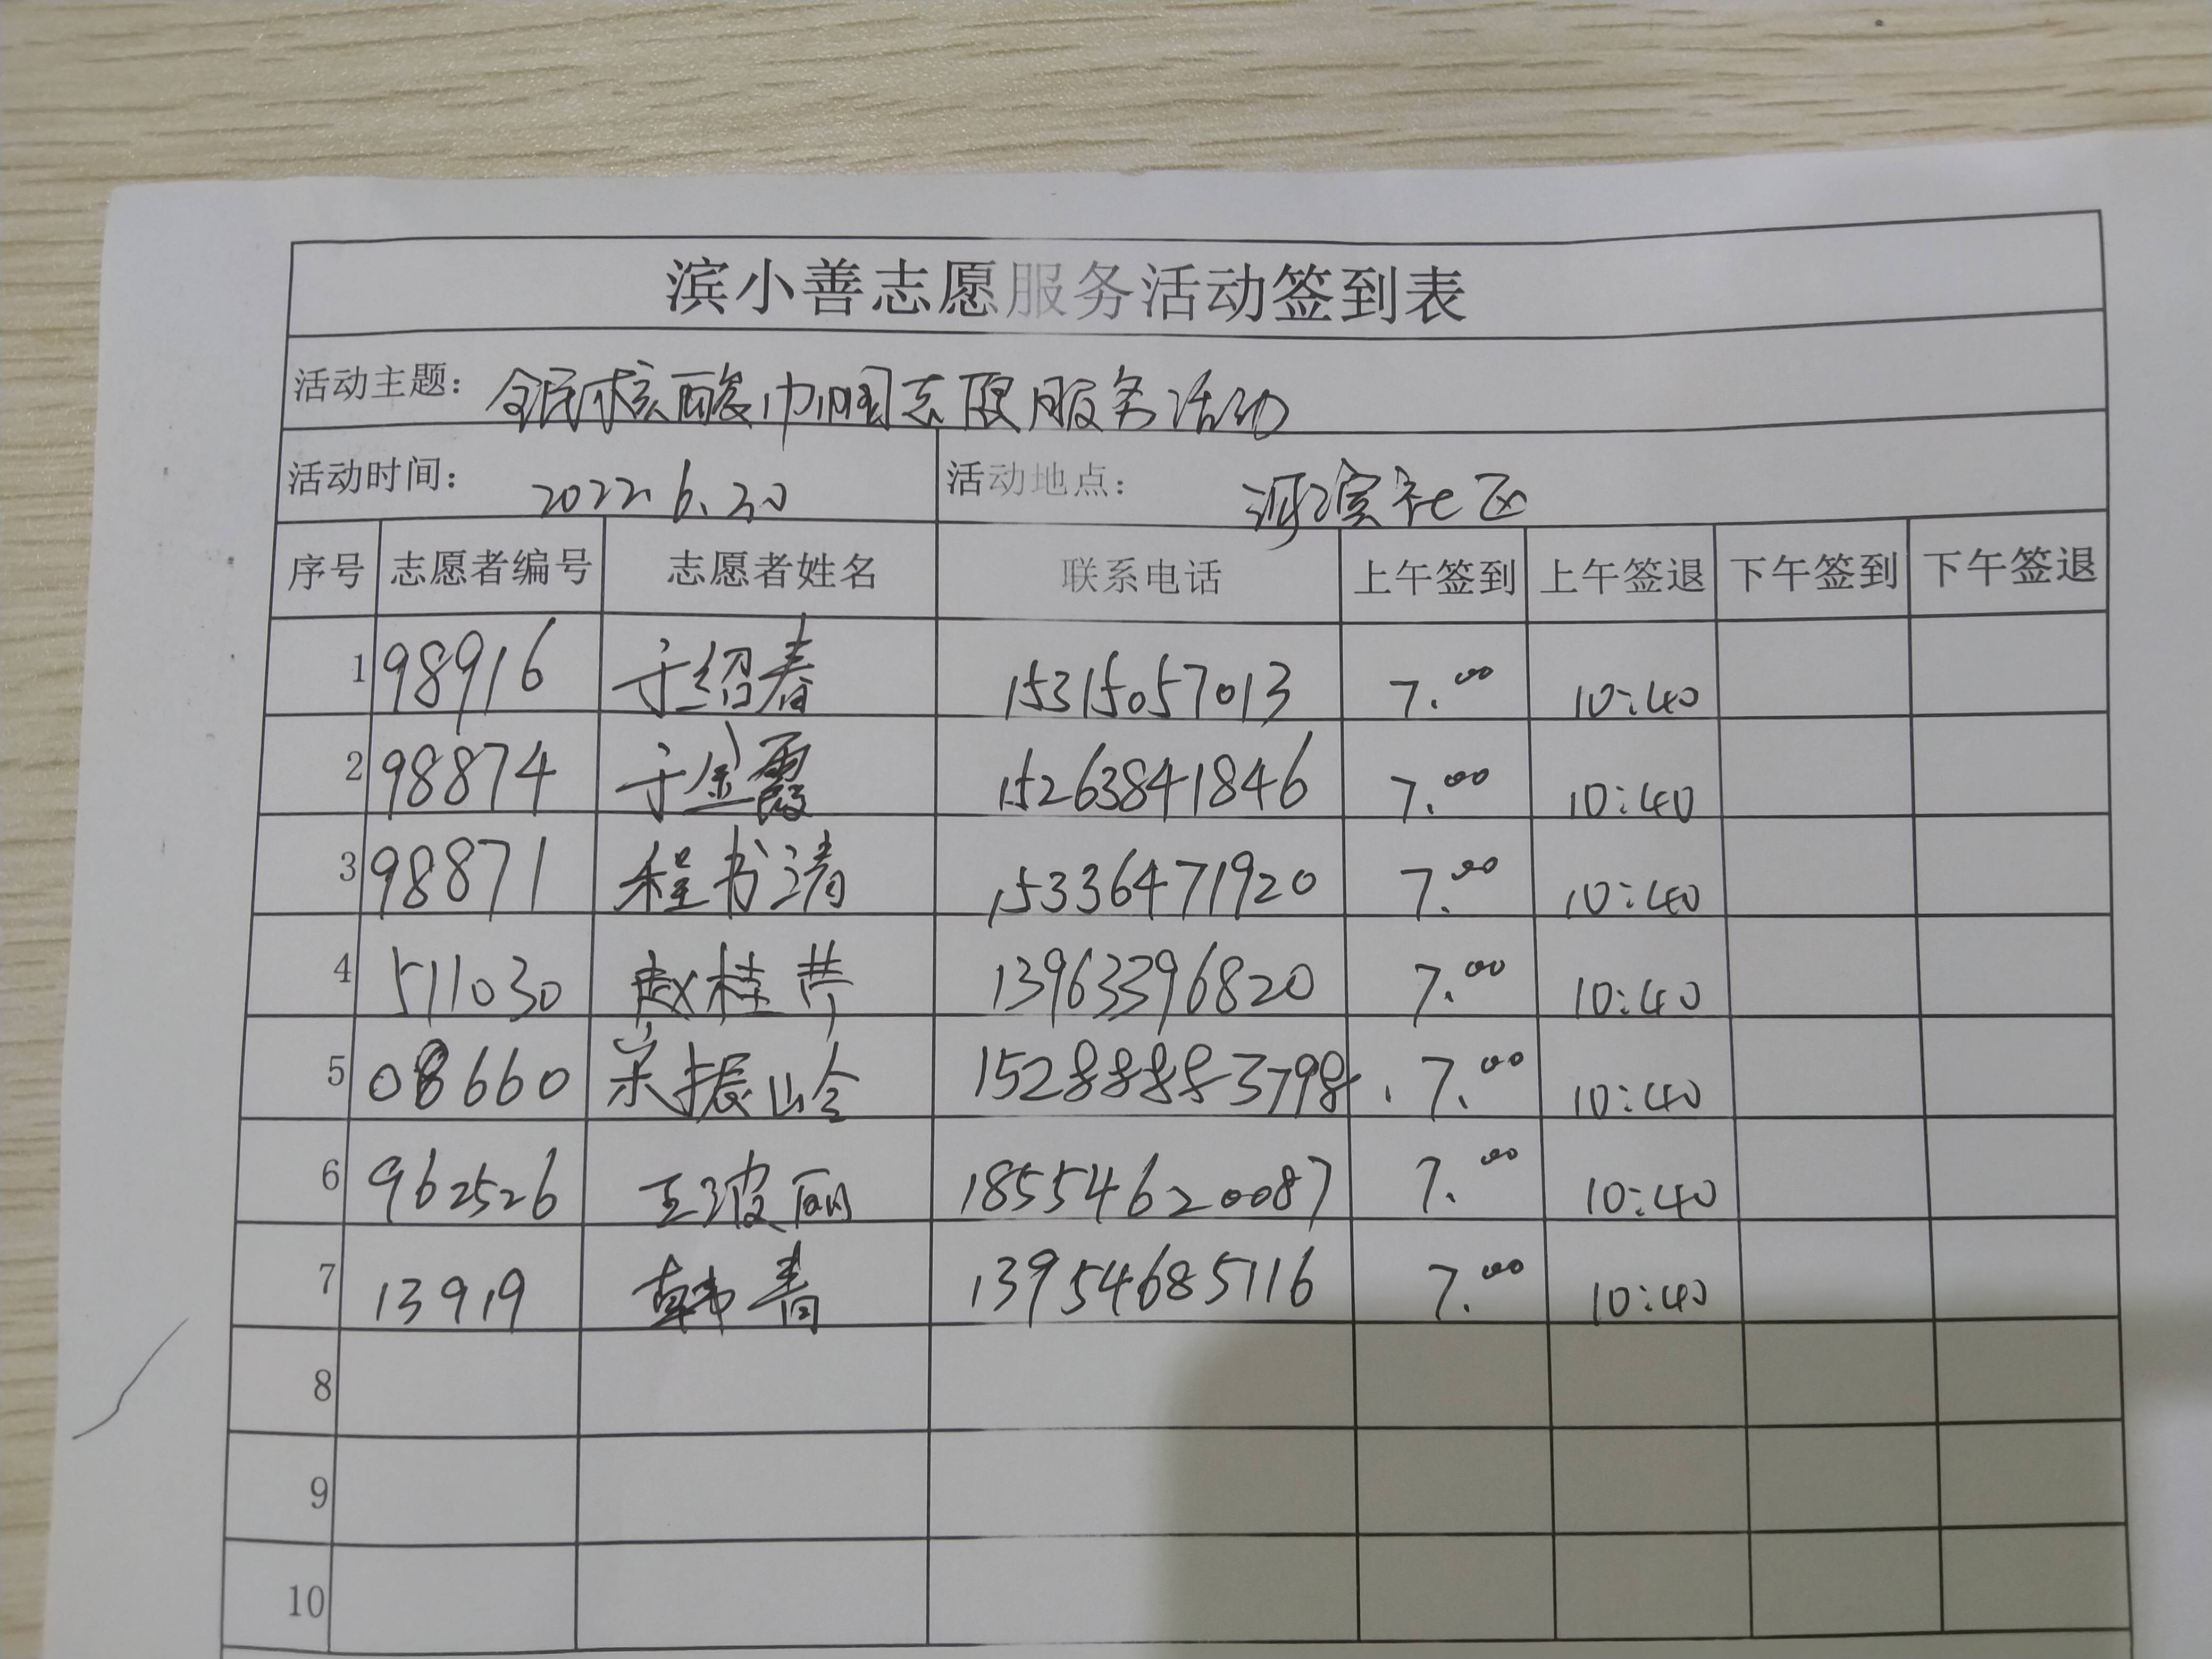 滨小善志愿服务活动签到表
活动主题: 全民核酸巾帼志愿服务活动
活动时间: 2022.6.30 活动地点: 河滨社区
序号 志愿者编号 志愿者姓名 联系电话 上午签到 上午签退 下午签到 下午签退
1 98916 于绍春 15315057013 7.00 10:40
2 98874 于金霞 15263841846 7.00 10:40
3 98871 程书清 15336471920 7.00 10:40
4 511030 赵桂芹 13963396820 7.00 10:40
5 08660 宋振岭 15288883798 7.00 10:40
6 962526 王波丽 18554620087 7.00 10:40
7 13919 韩青 13954685116 7.00 10:40
8
9
10